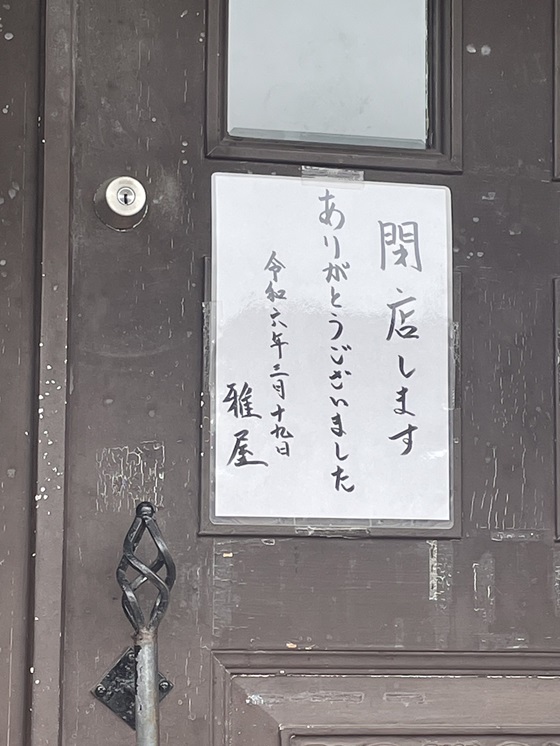 閉店します
ありがとうございました
令和六年三月十九日
雅屋